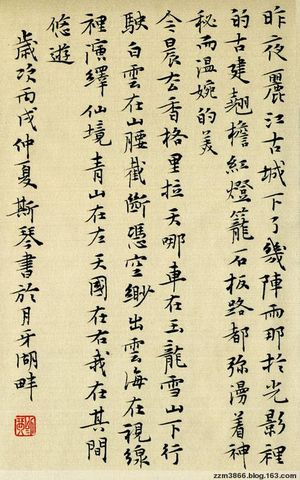 昨夜麗江古城下了幾陣雨那於光影裡
的古建翹檐紅燈籠石板路都弥漫着神
秘而温婉的美
今晨去香格里拉天哪車在玉龍雪山下行
駛白雲在山腰截斷憑空緲出雲海在視線
裡演繹仙境青山在左天國在右我在其間
悠遊
歲次丙戌仲夏斯琴書於月牙湖畔
zzm3866.blog.163.com